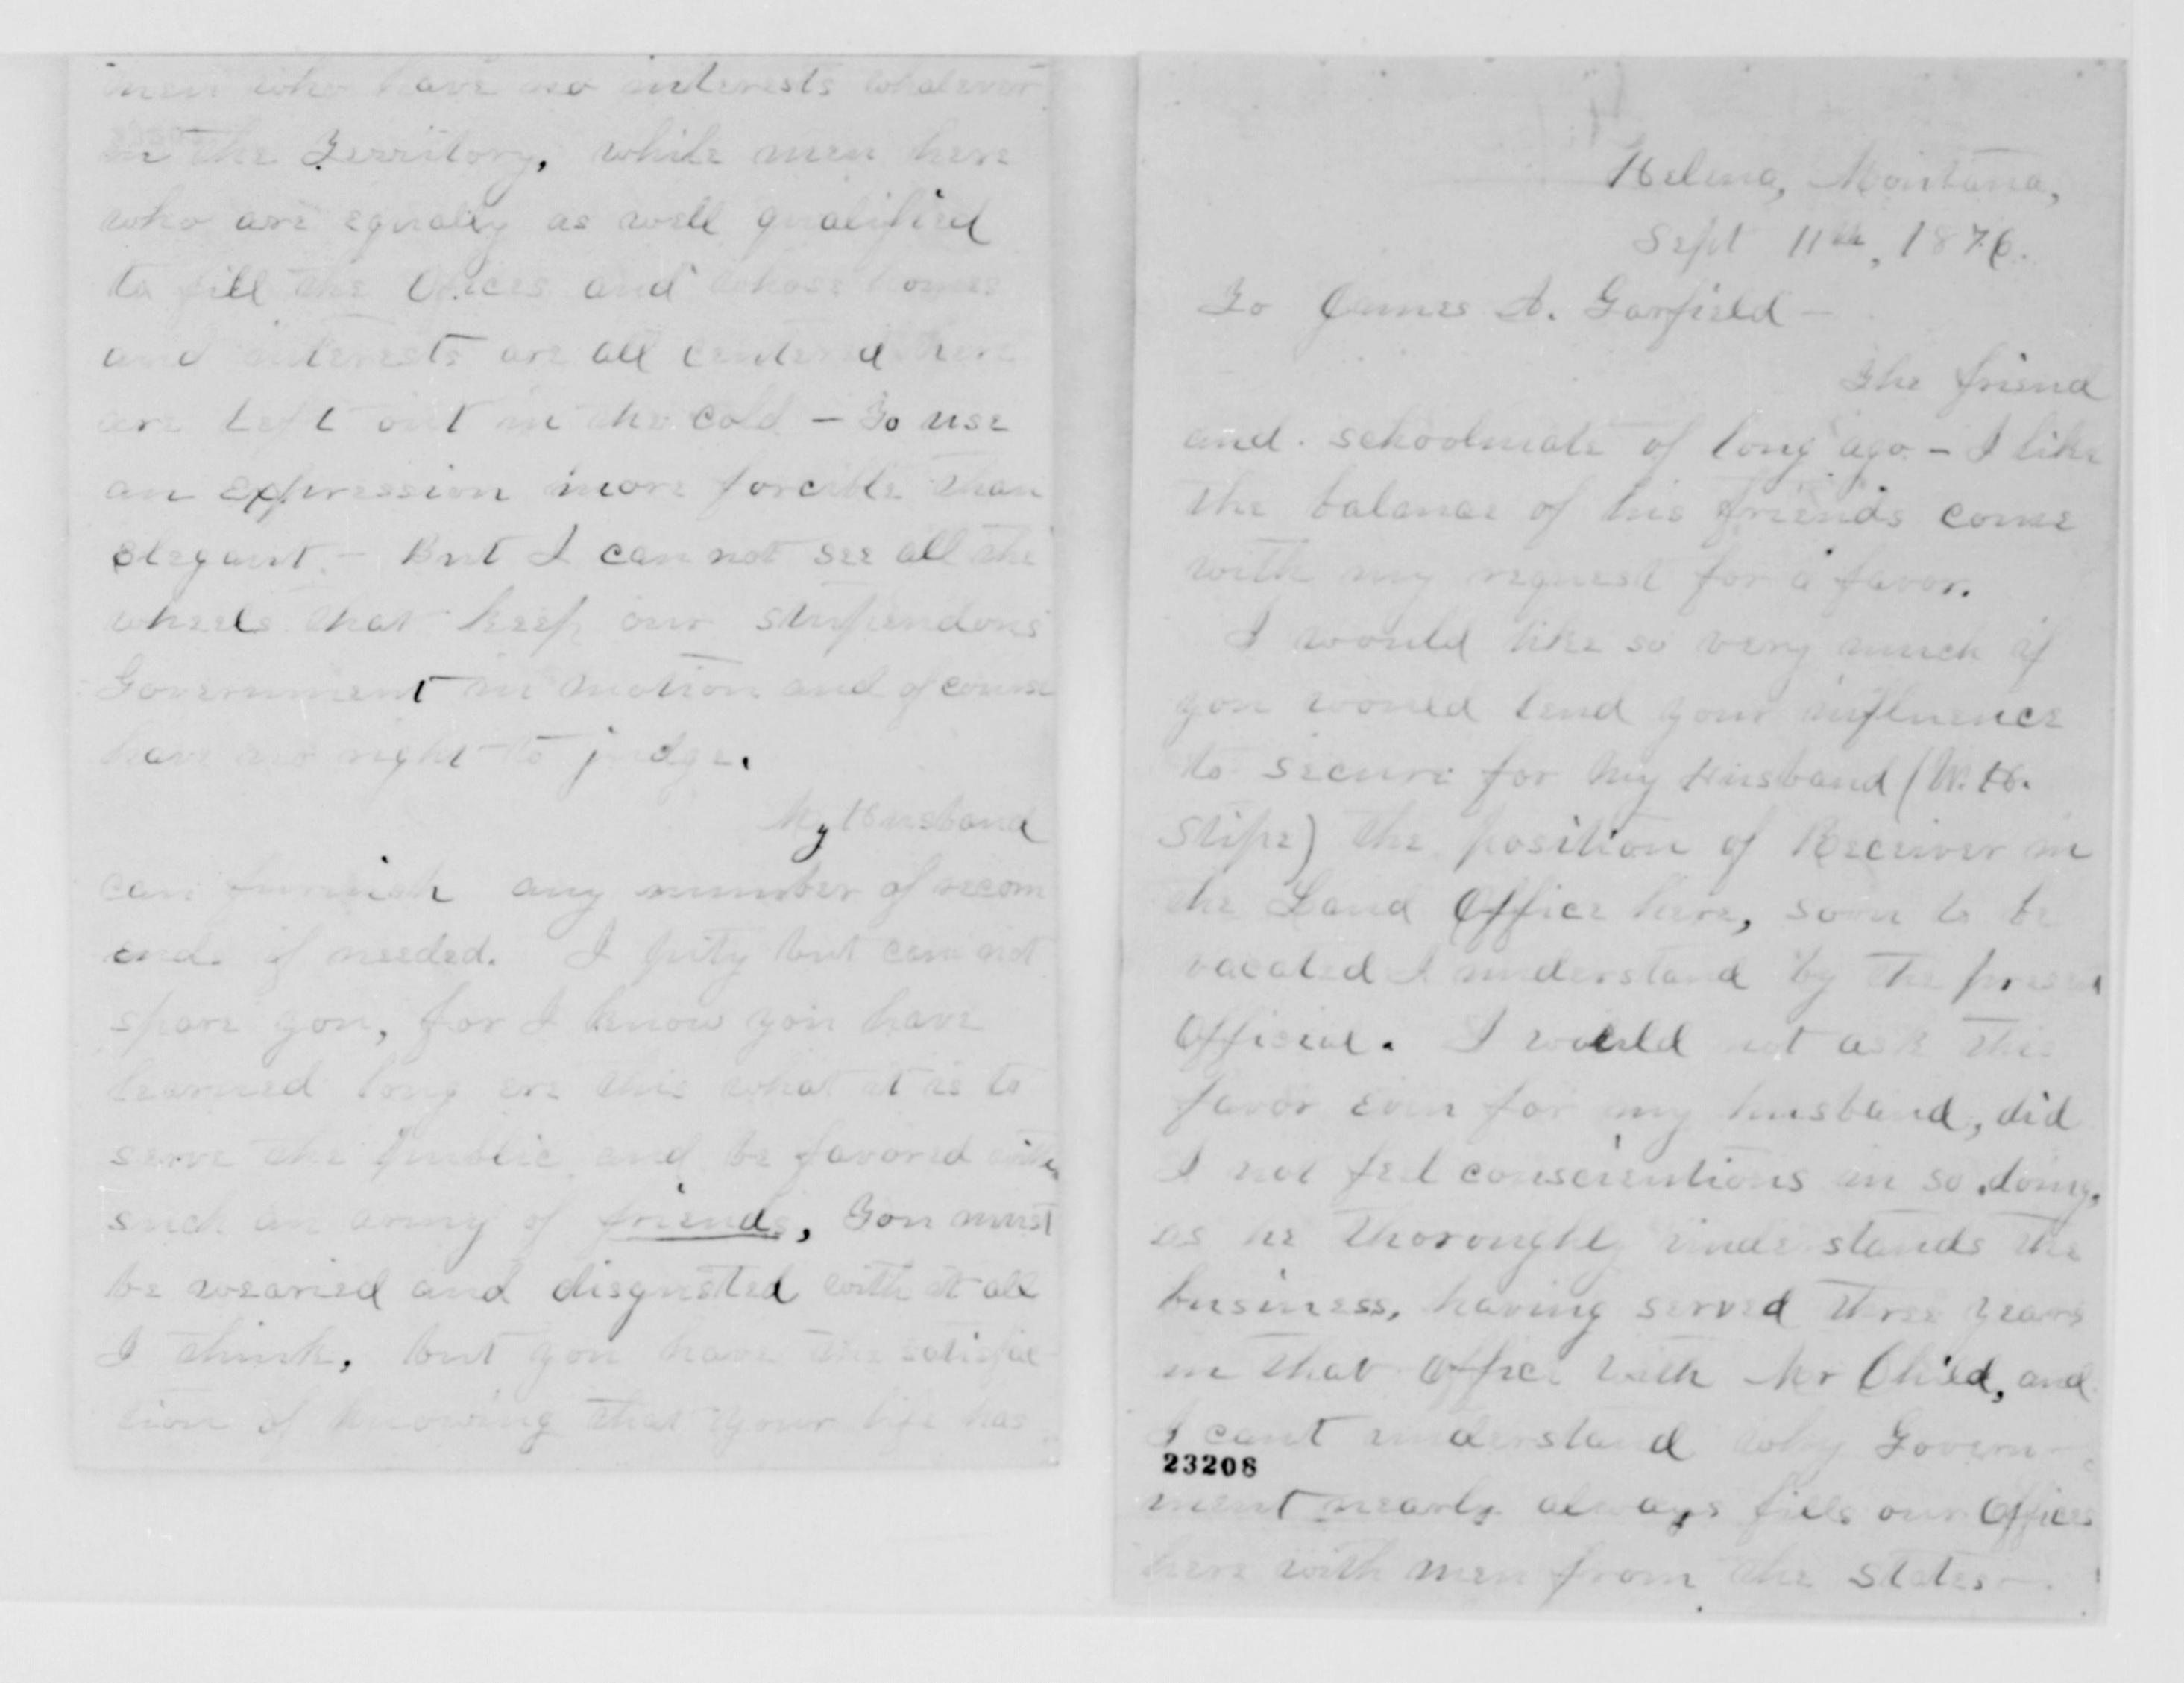 Helena, Montana,
Sept 11th, 1876.
To James A. Garfield —
The friend
and schoolmate of long ago – I like
the balance of his friends come
with my request for a favor.
I would like so very much if
you would lend your influence
to secure for my Husband (W. H.
Stipe) the position of Receiver in
the Land Office here, soon to be
vacated I understand by the present
Official. I would not ask this
favor even for my husband, did
I not feel conscientious in so doing,
as he thoroughly understands the
business, having served three years
in that Office with Mr Child, and
I cant understand why Govern-
23208
ment nearly always fills our Offices
here with men from the States —
men who have no interests whatever
in the Territory, while men here
who are equally as well qualified
to fill the Offices and whose homes
and interests are all centered here
are left out in the cold – To use
an expression more forcible than
elegant. – But I can not see all the
wheels that keep our stupendous
Government in motion and of course
have no right to judge.
My Husband
can furnish any number of recom
ends if needed. I pity but can not
spare you, for I know you have
learned long ere this what it is to
serve the public and be favored with
such an army of friends, You must
be wearied and disgusted with it all
I think, but you have the satisfac
tion of knowing that your life has